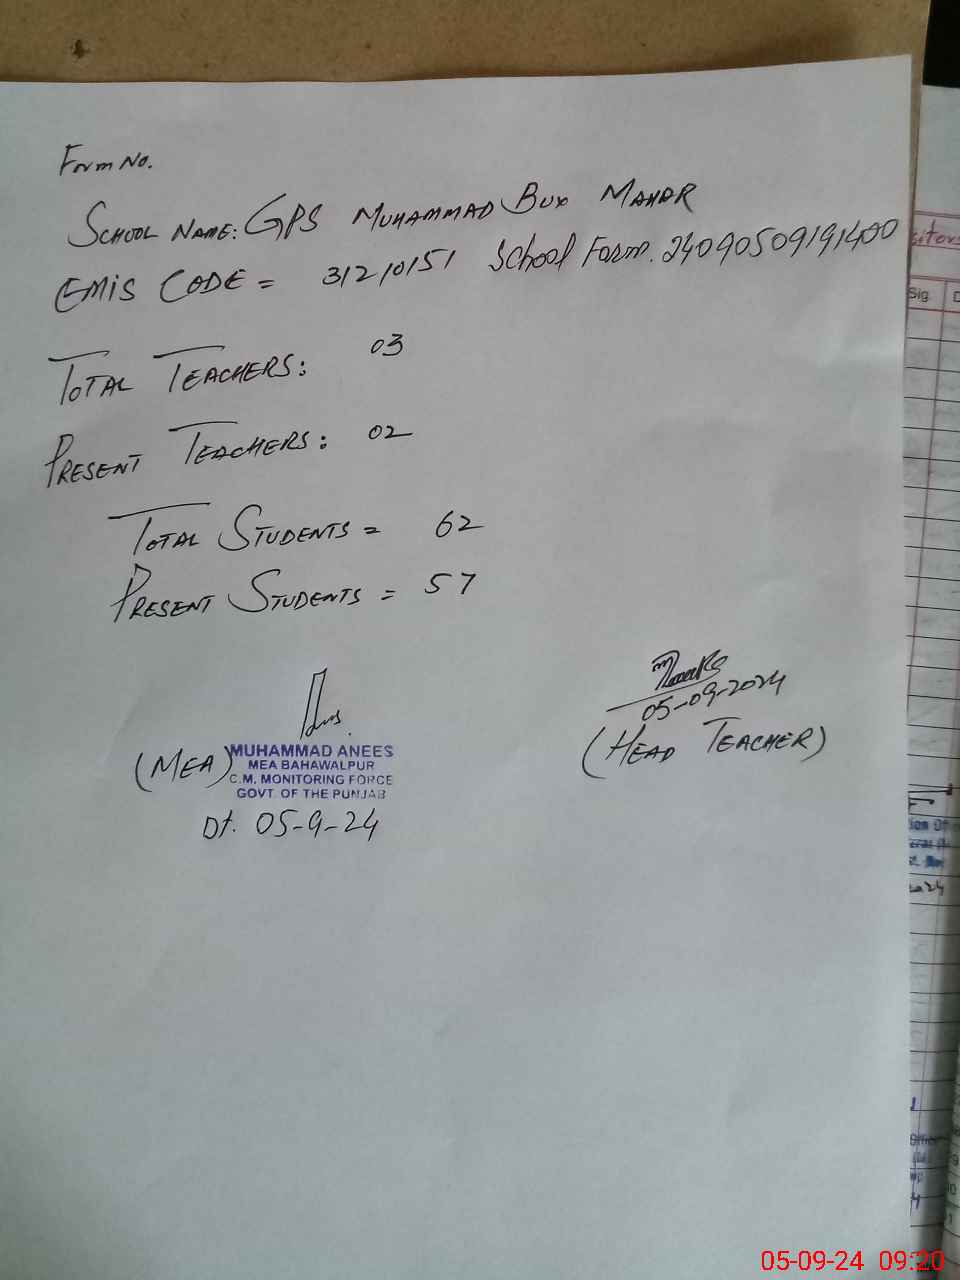 Form No.
SCHOOL NAME: GPS MUHAMMAD BUX MAHAR
EMIS CODE = 31210151 School Form. 24090509191400
TOTAL TEACHERS: 03
PRESENT TEACHERS: 02
TOTAL STUDENTS = 62
PRESENT STUDENTS = 57
05-09-2024
(HEAD TEACHER)
(MEA)
MUHAMMAD ANEES
MEA BAHAWALPUR
C.M. MONITORING FORCE
GOVT. OF THE PUNJAB
Dt. 05-9-24
Sig.
05-09-24 09:20